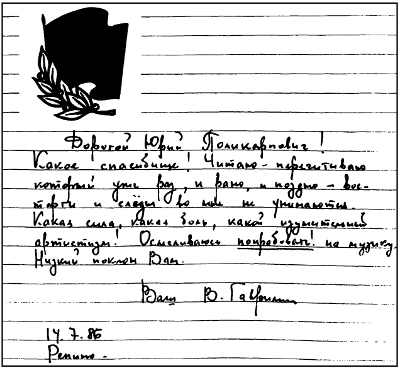 Дорогой Юрий Поликарпович!
Какое спасибище! Читаю - перечитываю
который уже раз, и рано, и поздно - вос-
торги и слёзы во мне не унимаются.
Какая сила, какая боль, какой изумительный
артистизм! Осмеливаюсь попробовать! на музыку.
Низкий поклон Вам.
Ваш В. Гаврилин
14.7.86
Репино.